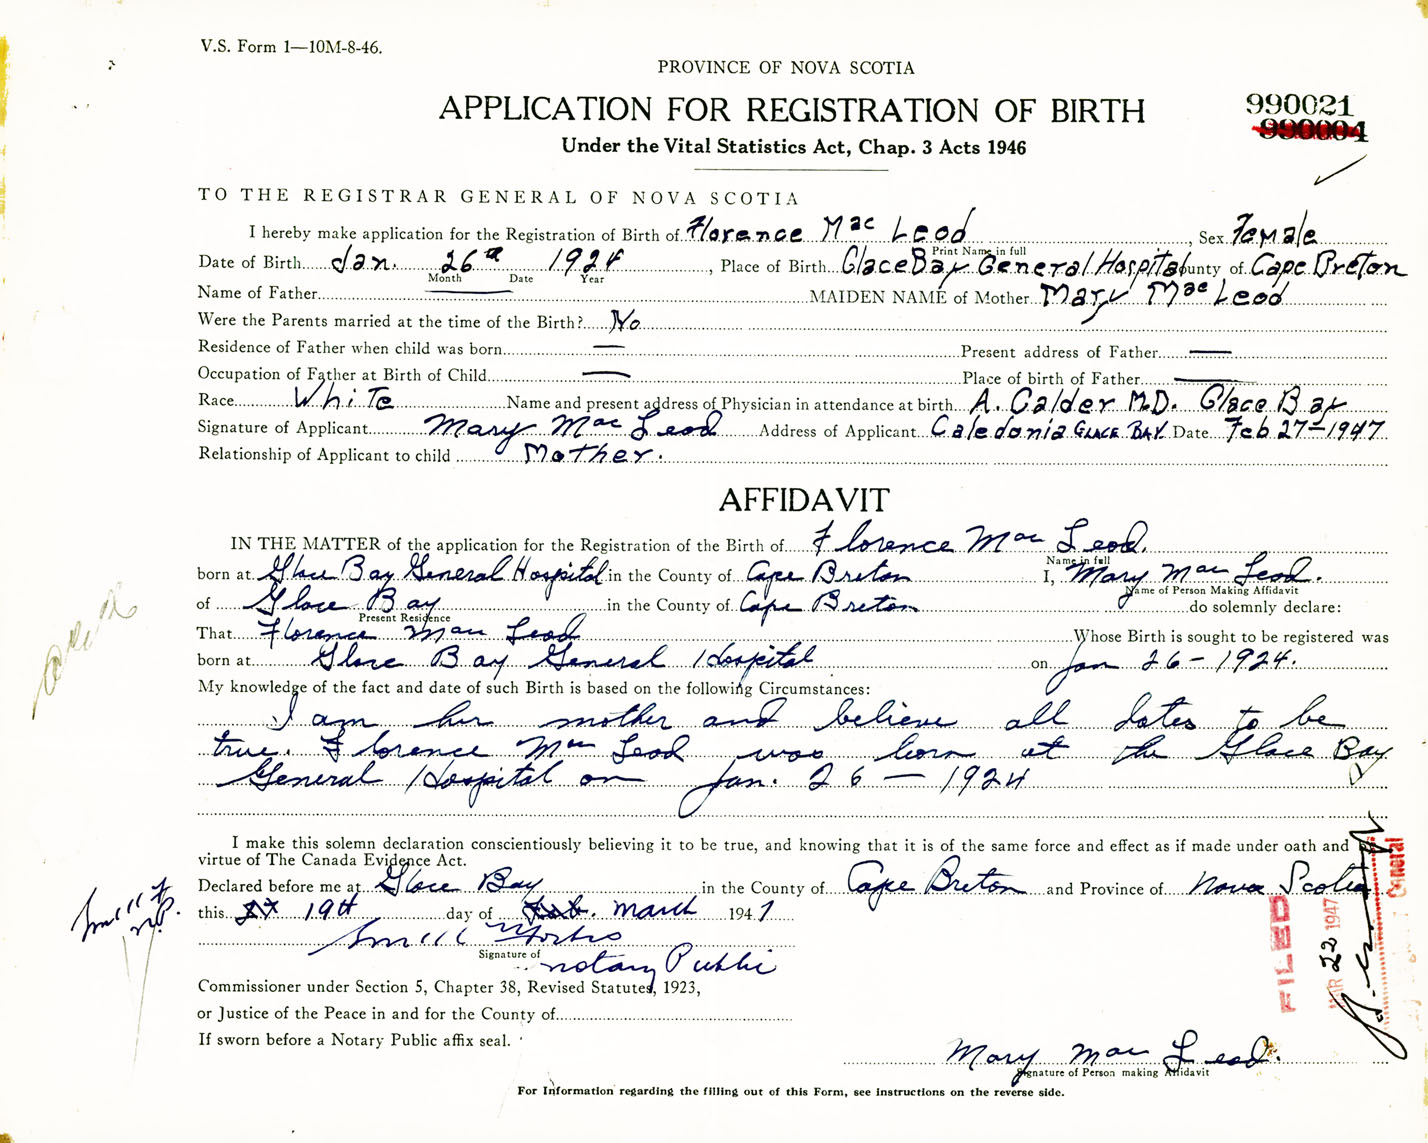 V.S. Form 1—10M-8-46.
PROVINCE OF NOVA SCOTIA
APPLICATION FOR REGISTRATION OF BIRTH
990021
990004
Under the Vital Statistics Act, Chap. 3 Acts 1946
TO THE REGISTRAR GENERAL OF NOVA SCOTIA
I hereby make application for the Registration of Birth of Florence Mac Leod, Sex Female
Print Name in full
Date of Birth Jan. 26th 1924, Place of Birth Glace Bay General Hospital County of Cape Breton
Month Date Year
Name of Father — MAIDEN NAME of Mother Mary Mac Leod
Were the Parents married at the time of the Birth? No
Residence of Father when child was born — Present address of Father —
Occupation of Father at Birth of Child — Place of birth of Father —
Race White Name and present address of Physician in attendance at birth A. Calder M.D. Glace Bay
Signature of Applicant Mary Mac Leod Address of Applicant Caledonia GLACE BAY Date Feb 27-1947
Relationship of Applicant to child Mother.
AFFIDAVIT
IN THE MATTER of the application for the Registration of the Birth of Florence Mac Leod.
Name in full
born at Glace Bay General Hospital in the County of Cape Breton I, Mary Mac Leod.
Name of Person Making Affidavit
of Glace Bay in the County of Cape Breton do solemnly declare:
Present Residence
That Florence Mac Leod Whose Birth is sought to be registered was
born at Glace Bay General Hospital on Jan 26-1924.
My knowledge of the fact and date of such Birth is based on the following Circumstances:
I am her mother and believe all dates to be
true. Florence Mac Leod was born at the Glace Bay
General Hospital on Jan. 26 — 1924
I make this solemn declaration conscientiously believing it to be true, and knowing that it is of the same force and effect as if made under oath and
virtue of The Canada Evidence Act.
Declared before me at Glace Bay in the County of Cape Breton and Province of Nova Scotia
this 19th day of Feb. March 1947
Signature of
notary Public
Commissioner under Section 5, Chapter 38, Revised Statutes, 1923,
or Justice of the Peace in and for the County of
If sworn before a Notary Public affix seal.
FILED
MAR 22 1947
General
Mary Mac Leod.
Signature of Person making Affidavit
For Information regarding the filling out of this Form, see instructions on the reverse side.